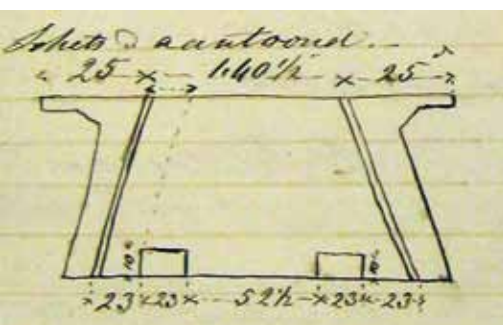 Schets d aantoond.
25 × 1.40½ × 25
10 10
23 × 23 × 52½ × 23 × 23